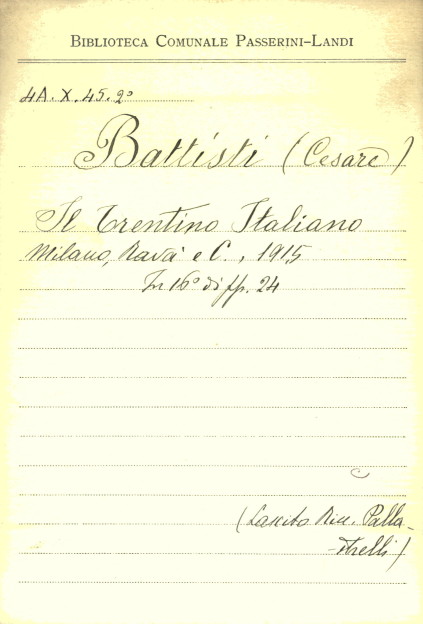 BIBLIOTECA COMUNALE PASSERINI-LANDI
4A. X. 45. 2°
Battisti (Cesare)
Il Trentino Italiano
Milano, Ravà e C., 1915
In 16° di pp. 24
(Lascito Palla-
-strelli)